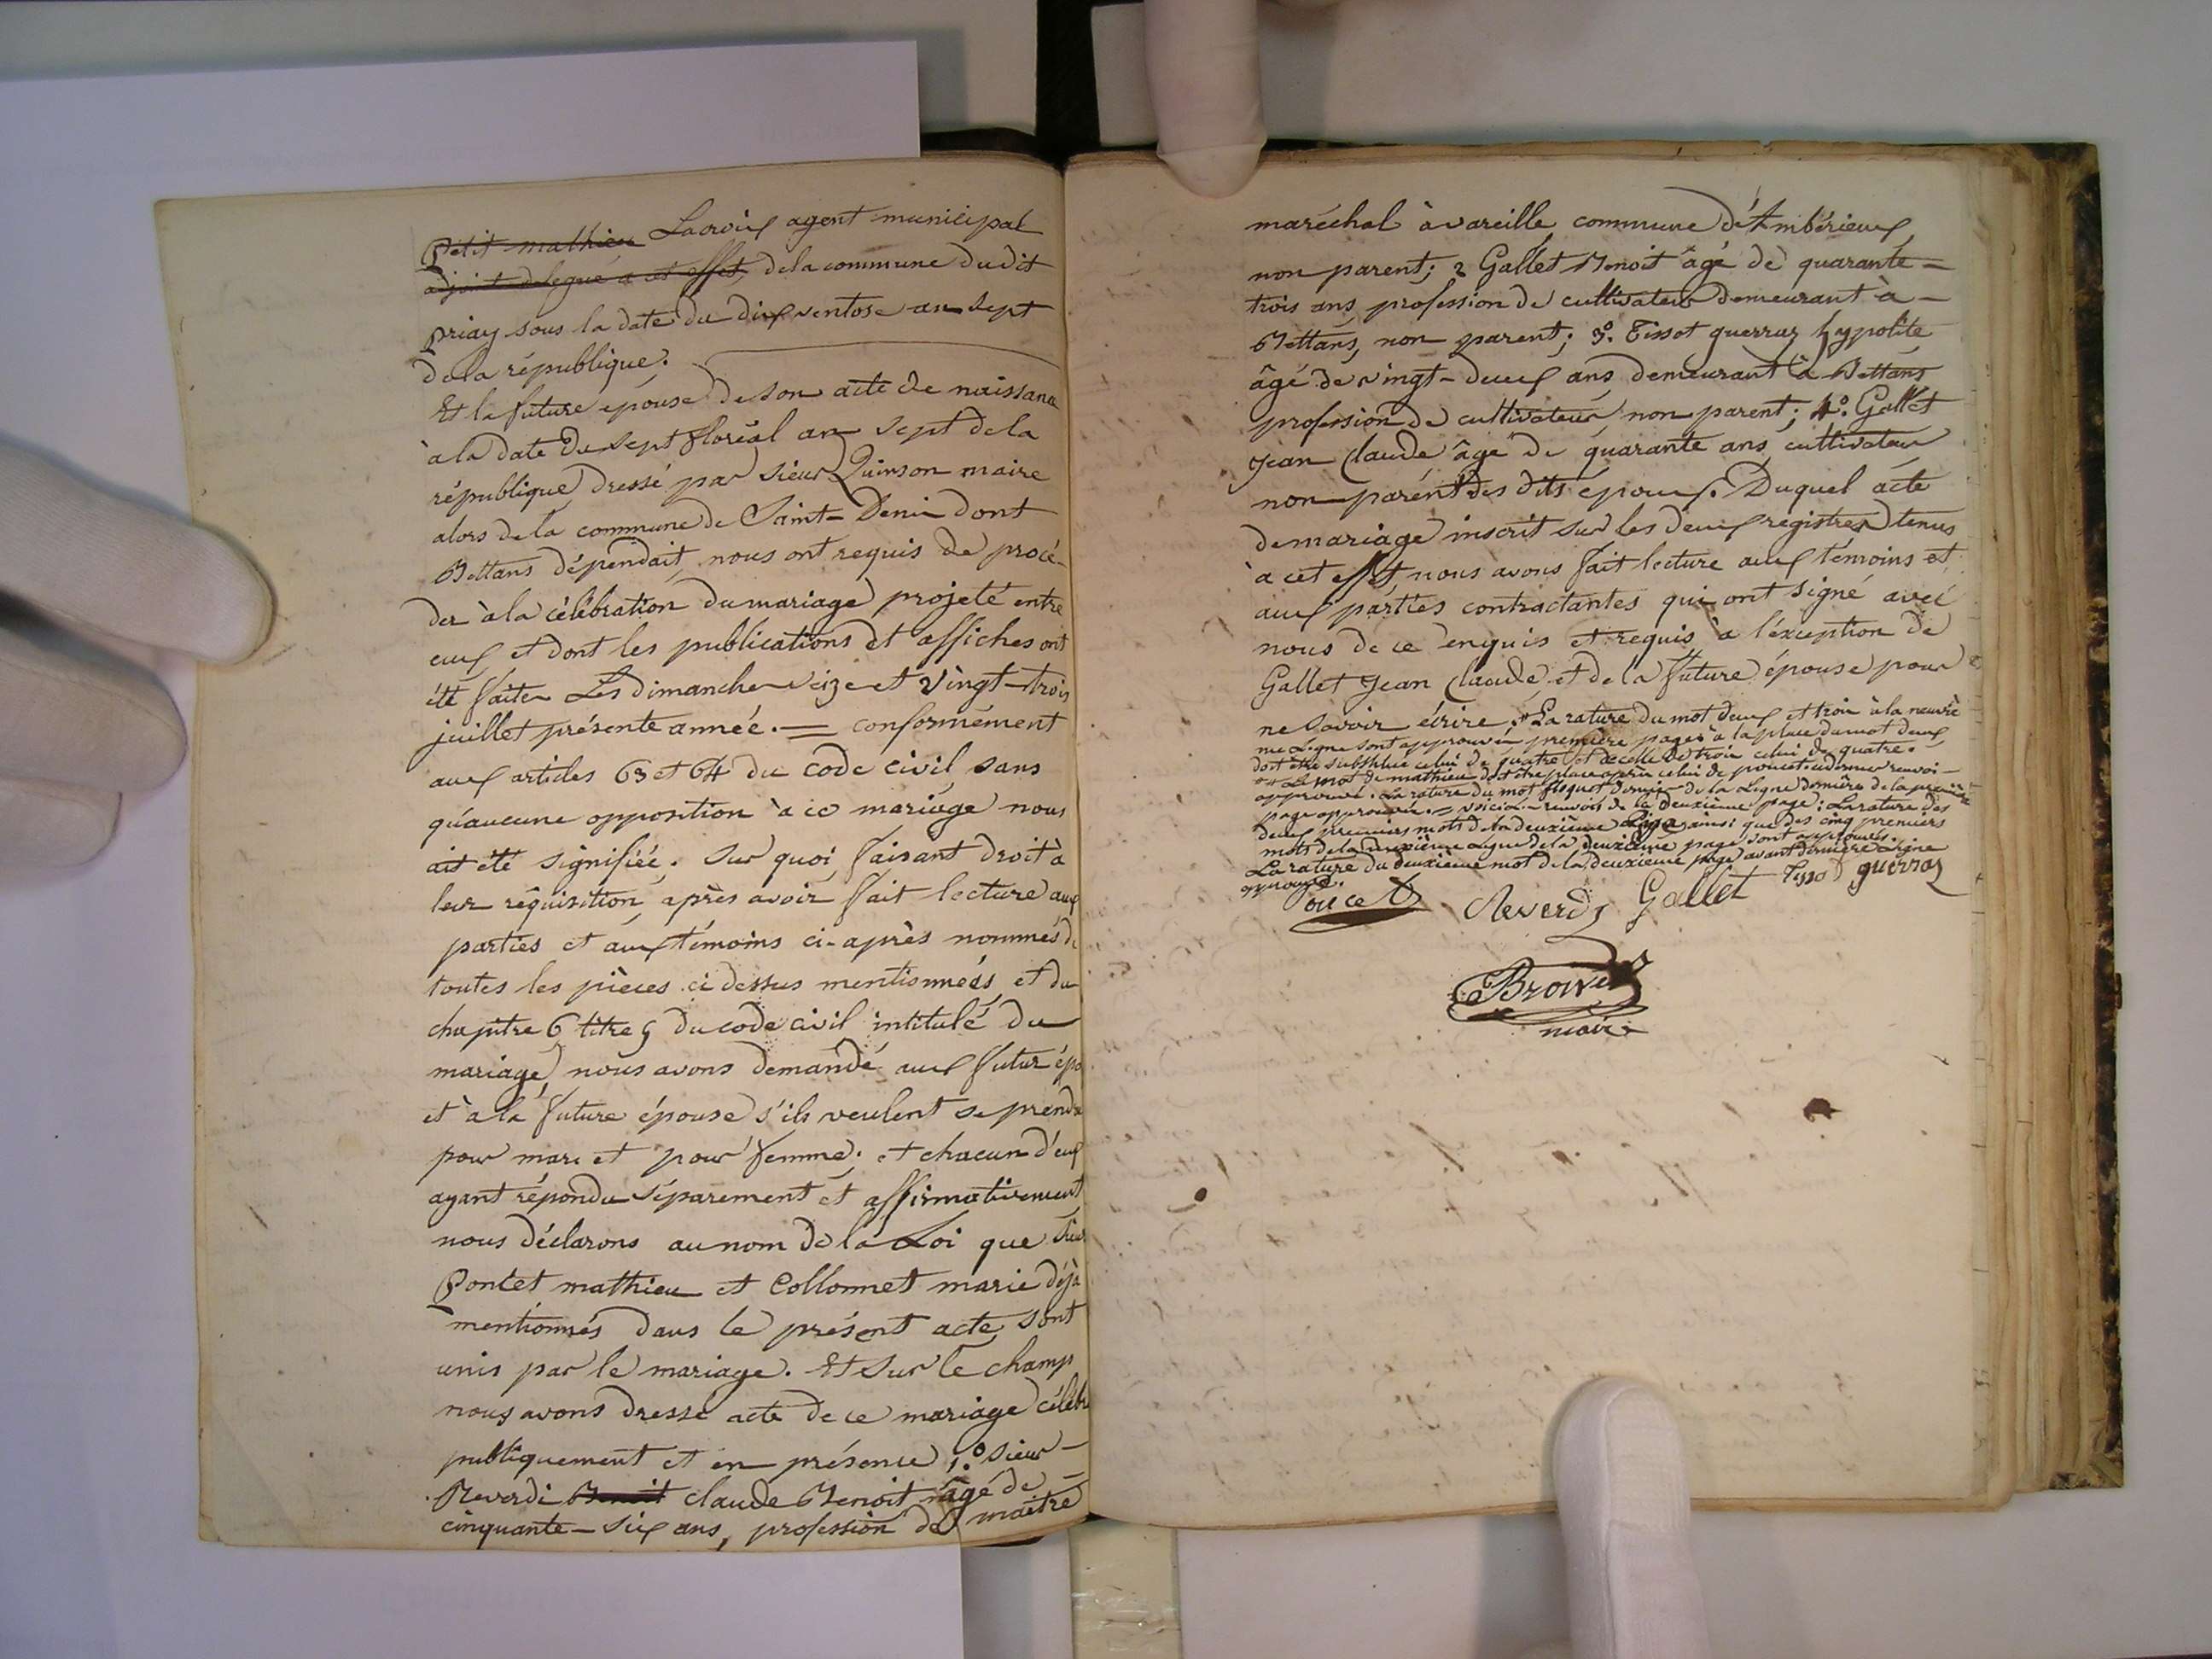 Petit mathieu Lacroix agent municipal
adjoint delegué a cet effet, de la commune du dit
priay sous la date du dix ventose an sept
de la république.
Et la future epouse de son acte de naissance
à la date du sept floréal an sept de la
république dressé par sieur Quinson maire
alors de la commune de Saint-Denis dont
Bettans dépendait, nous ont requis de procé-
der à la célébration du mariage projeté entre
eux et dont les publications et affiches ont
été faites Les dimanches seize et vingt-trois
juillet présente année. = conformément
aux articles 63 et 64 du code civil, sans
qu'aucune opposition à ce mariage nous
ait été signifiée. Sur quoi, faisant droit à
leur réquisition, après avoir fait lecture aux
parties et aux témoins ci-après nommés de
toutes les pièces ci dessus mentionnées et du
chapitre 6 titre 5 du code civil intitulé du
mariage, nous avons demandé aux futur épo
et à la future épouse s'ils veulent se prendre
pour mari et pour femme; et chacun d'eux
ayant répondu séparement et affirmativement
nous déclarons au nom de la Loi que sieur
Poncet mathieu et Collonnet marie déjà
mentionnés dans le présent acte sont
unis par le mariage. Et sur le champ
nous avons dressé acte de ce mariage célébré
publiquement et en présence 1.º sieur -
Reverdi Benoit claude Benoit âgé de
cinquante-six ans, profession de maitre
maréchal à vareille commune d'Ambérieux
non parent; 2 Gallet Benoit âgé de quarante-
trois ans, profession de cultivateur demeurant à -
Bettans, non parent; 3.º Tissot guerraz hypolite
âgé de vingt-deux ans demeurant à Bettans
profession de cultivateur, non parent; 4.º Gallet
Jean Claude âgé de quarante ans, cultivateur
non parent des dits époux. Duquel acte
de mariage inscrit sur les deux registres tenus
à cet effet, nous avons fait lecture aux témoins et
aux parties contractantes qui ont signé avec
nous de ce enquis et requis à l'exception de
Gallet Jean Claude et de la future épouse pour
ne savoir écrire. La rature du mot deux et trois à la neuviè
me Ligne sont approuvées première page à la place du mot deux
doit être substitué celui de quatre et de celle de trois celui de quatre.
Le mot de mathieu doit être placé après celui de poncet renvoi -
approuvé. La rature du mot dernier de la Ligne dernière de la première
page approuvée. = renvois de la deuxième page: La rature des
deux premiers mots de la deuxième Ligne ainsi que des cinq premiers
mots de la deuxième Ligne de la deuxième page sont approuvés.
La rature du deuxième mot de la deuxième page avant dernière Ligne
approuvée.
Poncet Reverdy Gallet Tissot guerraz
maire